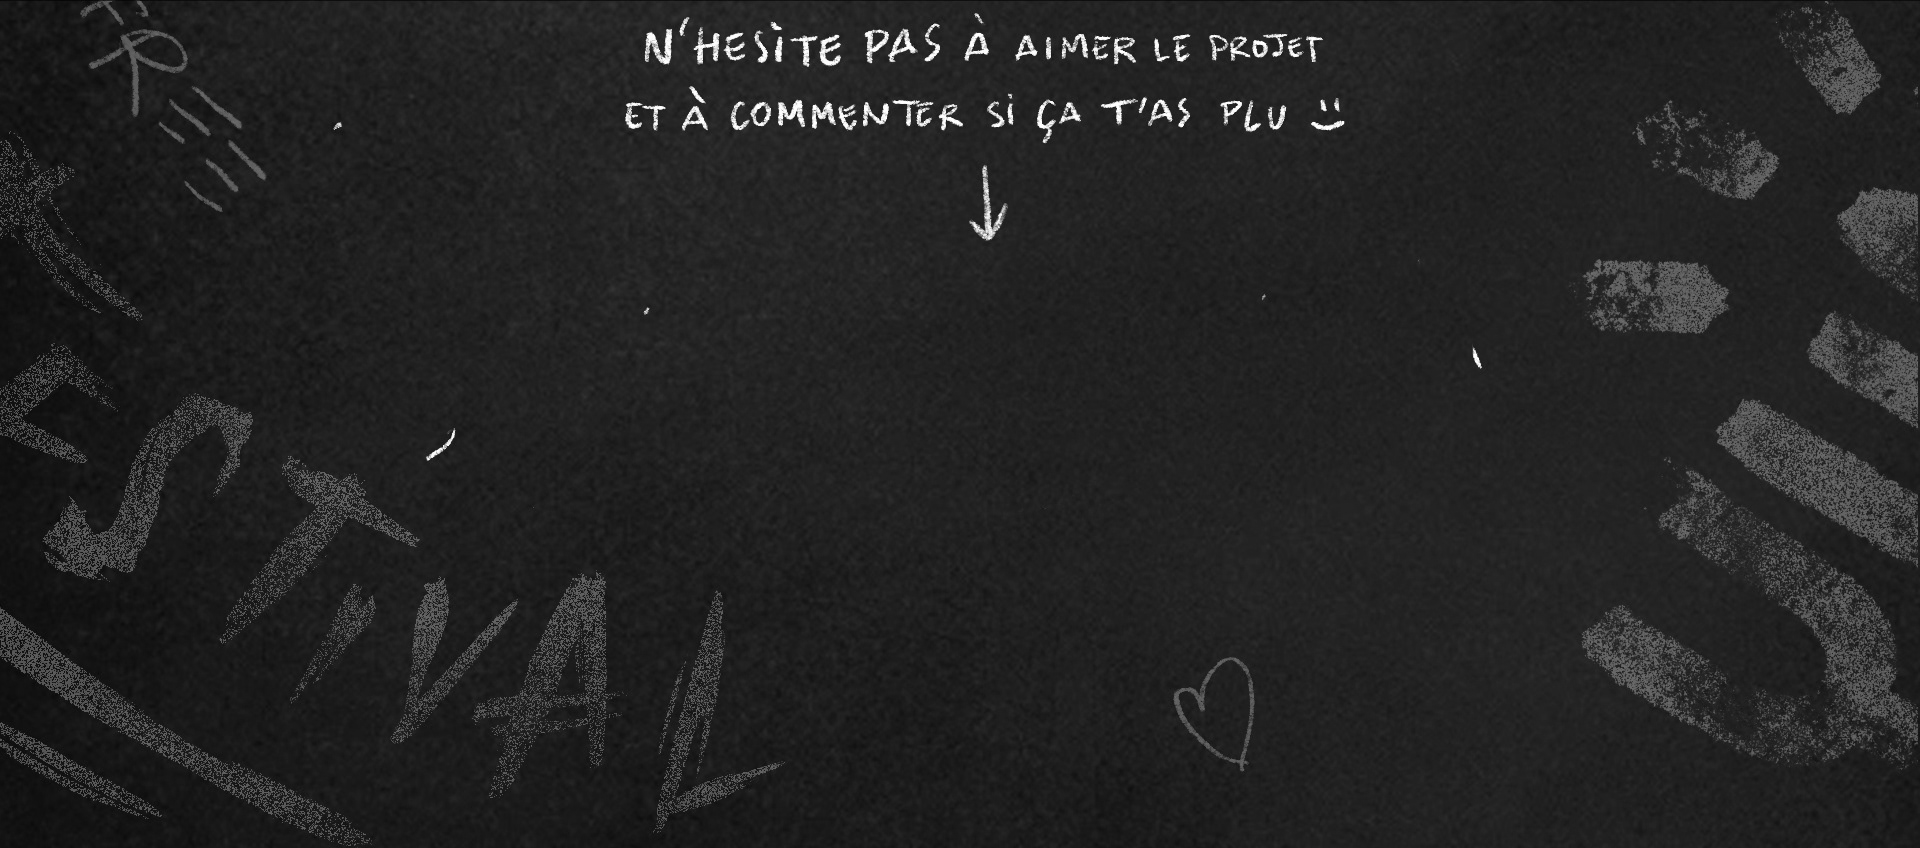 N'HESITE PAS À AIMER LE PROJET
ET À COMMENTER SI ÇA T'AS PLU
ESTIVAL